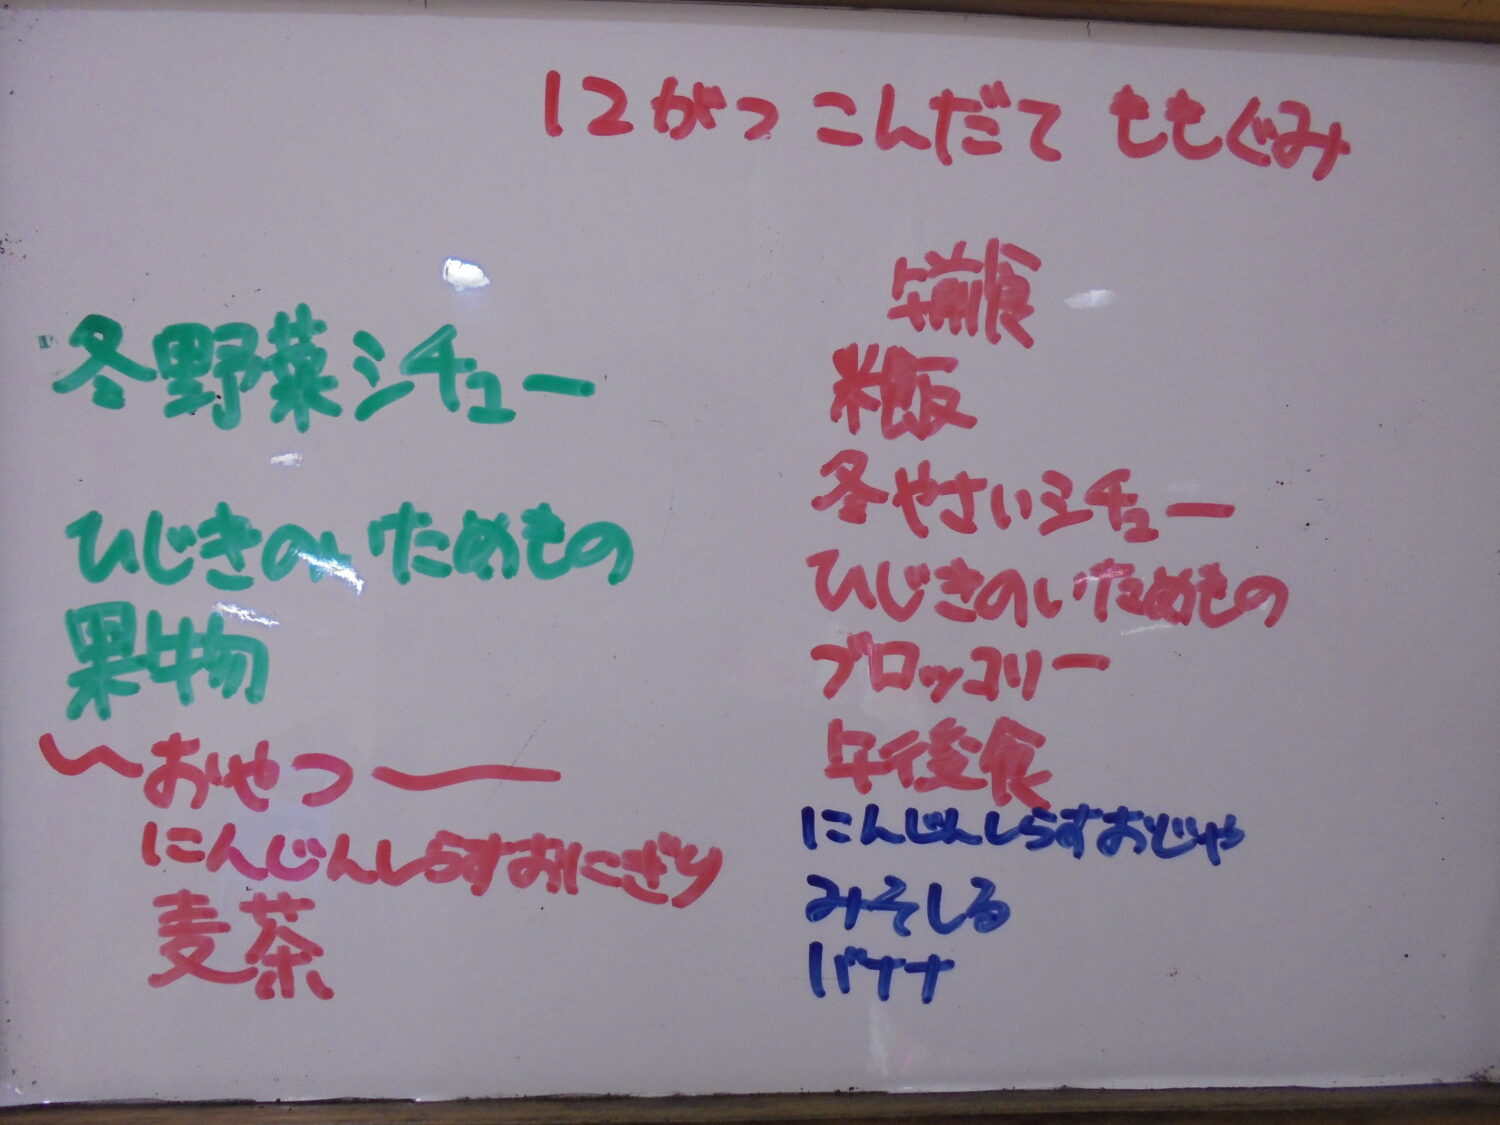 12がつ こんだて ももぐみ
冬野菜シチュー
ひじきのいためもの
果物
〜おやつ〜
にんじんしらすおにぎり
麦茶
午前食
米飯
冬やさいシチュー
ひじきのいためもの
ブロッコリー
午後食
にんじんしらすおじや
みそしる
バナナ